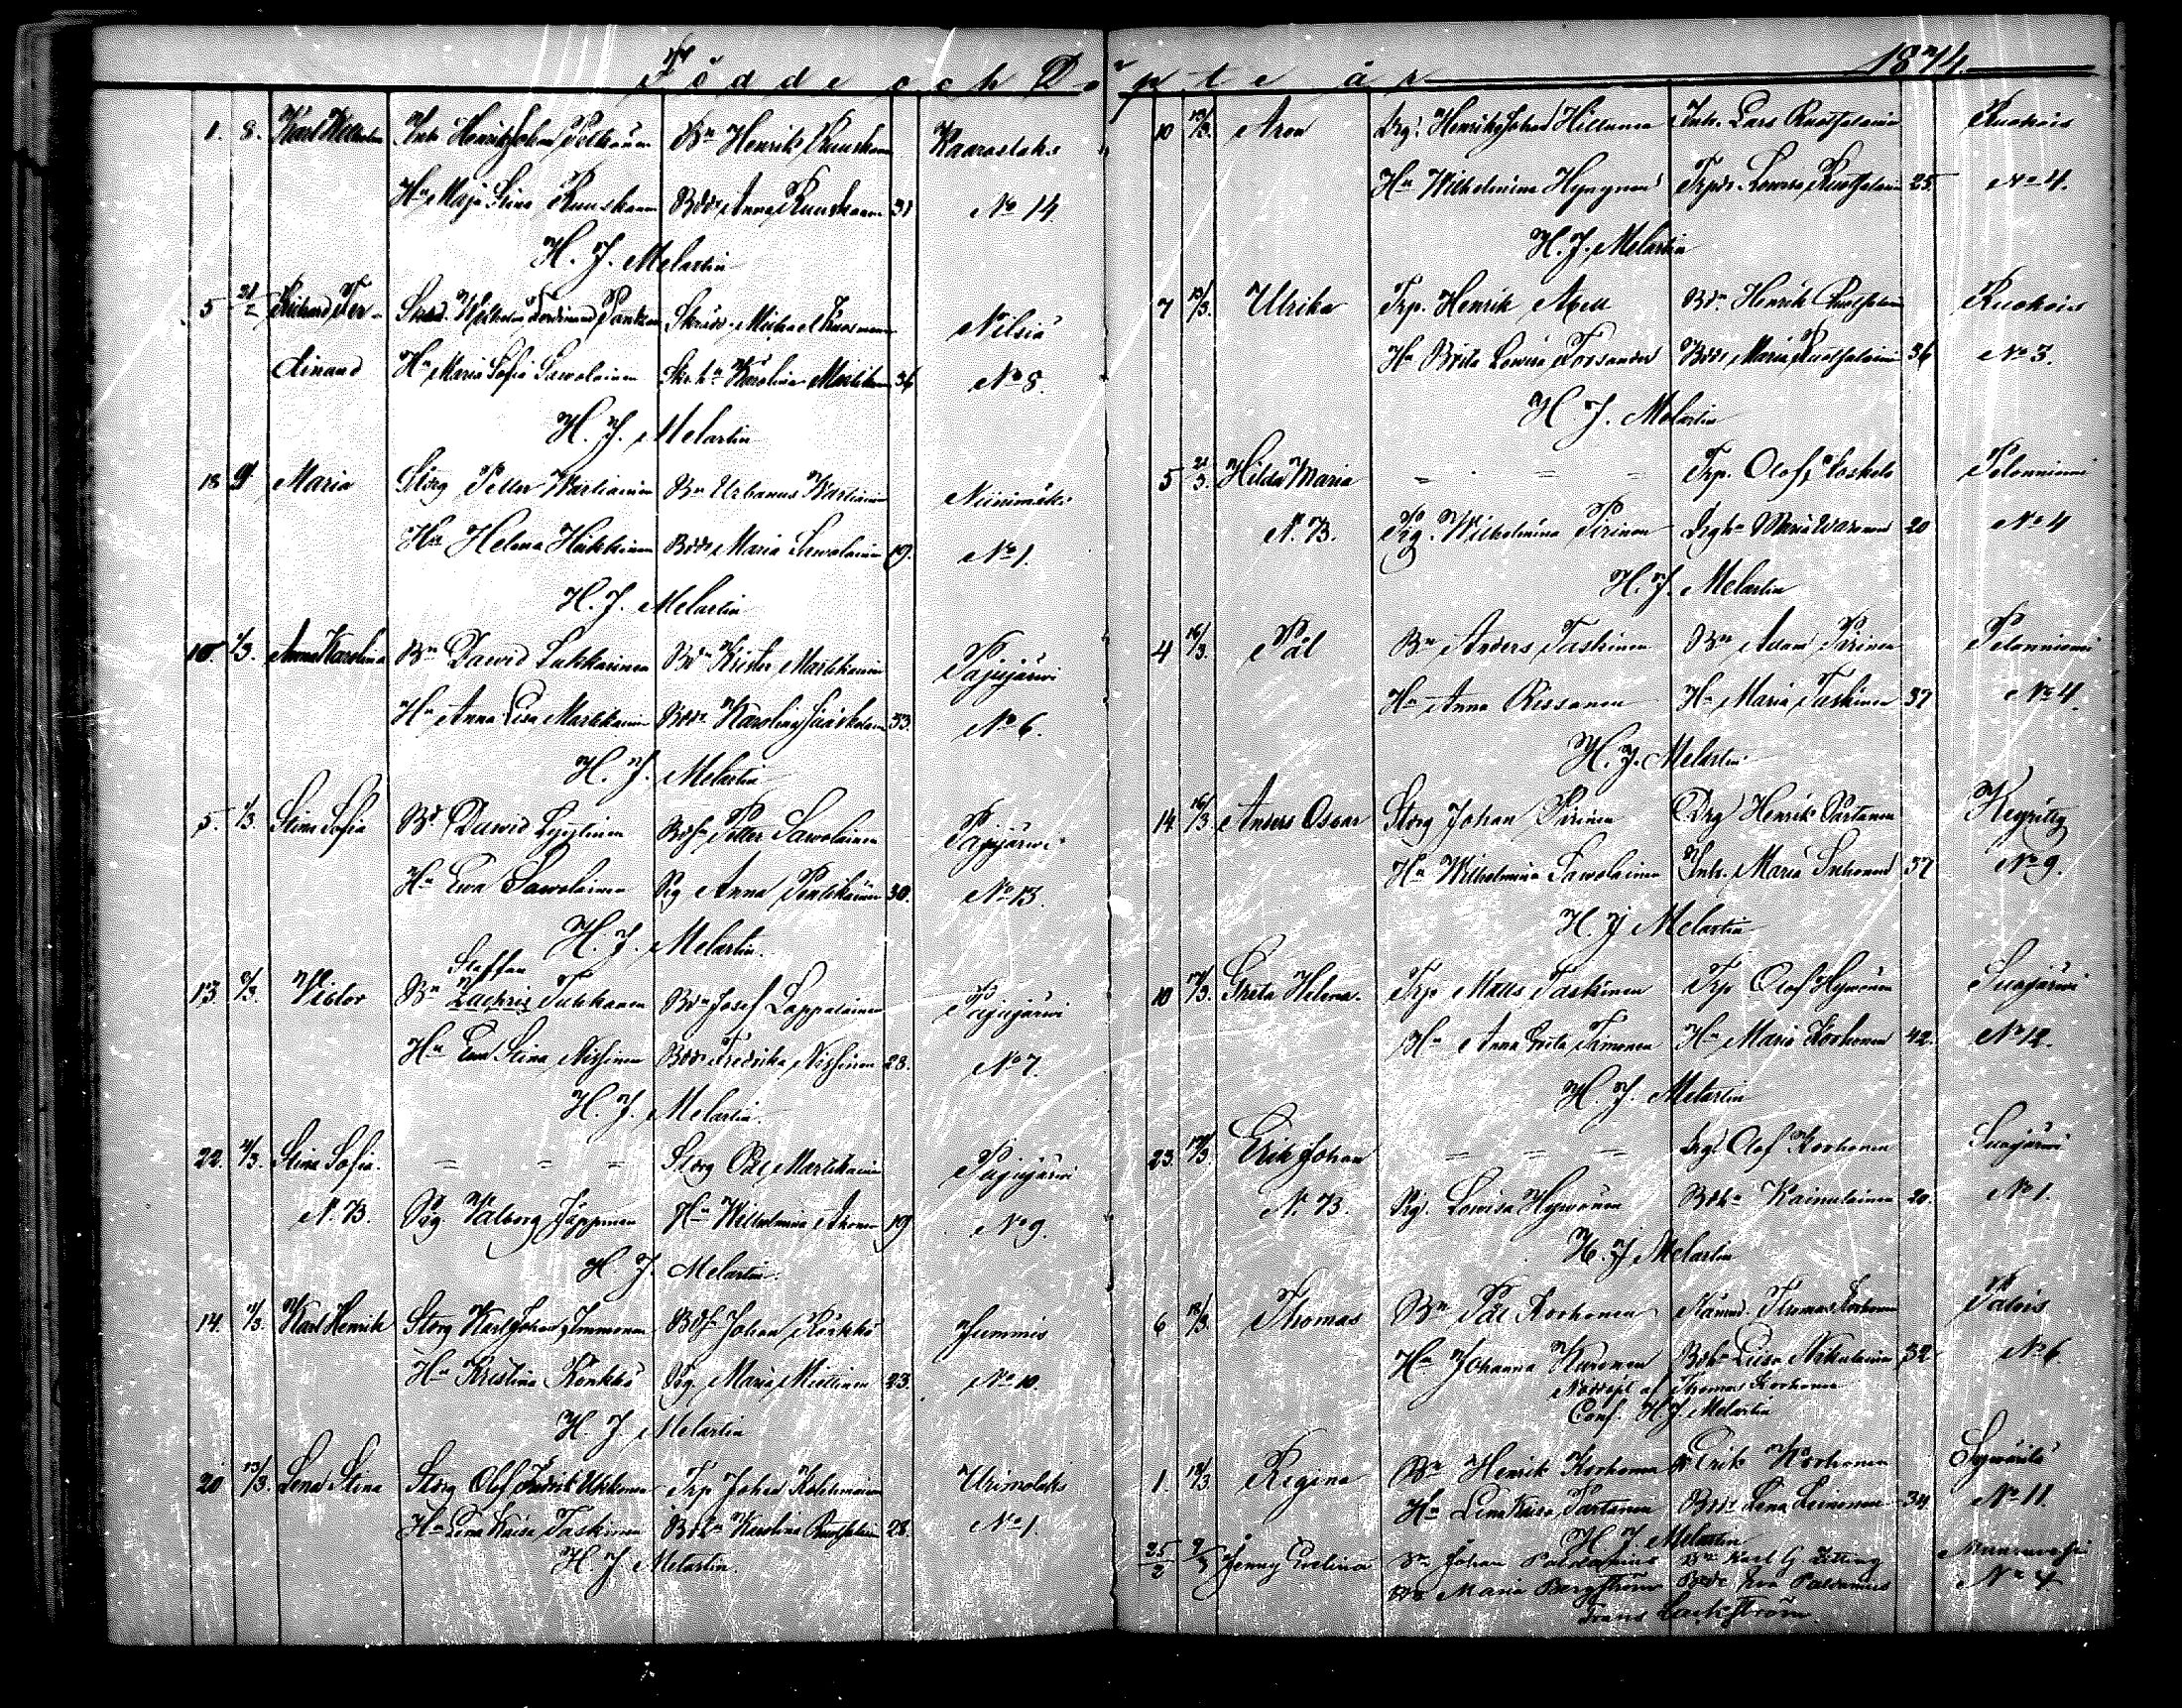 Födde och Döpte år 1874.
1. 8. Karl Wilhelm Inh. Henrik Johan Pelkonen Bn Henrik Ruuskanen Kaaraslaks
Hu Maja Stina Ruuskanen Bdr Anna Ruuskanen 31 No 14.
H. J. Melartin
5 21/2 Richard Fer- Wilhelm Ferdinand Michael Nilsiä
dinand Hu Maria Sofia Sawolainen Karolina Martikainen 36 No 8.
H. J. Melartin
18 Maria Storg Petter Wartiainen Bn Urbanus Wartiainen Niinimäki
Hu Helena Heikkinen Bdr Maria Sawolainen 19. No 1.
H. J. Melartin
10. 1/3. Anna Karolina Bn Dawid Lukkarinen Bdn Krister Martikainen Pajujärwi
Hu Anna Lisa Martikainen Bdr Karolina Jääskelainen 33. No 6.
H. J. Melartin
5. 1/3. Stina Sofia Bd Dawid Lyytinen Bdsn Petter Sawolainen Pajujärwi
Hu Ewa Sawolainen Pig Anna Pentikäinen 30. No 13.
H. J. Melartin.
Staffan
13. Victor Bn Zachris Turkkanen Bdn Josef Lappalainen Pajujärwi
Hu Ewa Stina Nissinen Bdr Fredrika Nissinen 28. No 7.
H. J. Melartin.
22. Stina Sofia. = = = Storg Pål Martikainen Pajujärwi
N. B. Pig Walborg Jäppinen Hu Wilhelmina 19 No 9.
H. J. Melartin.
14. Karl Henrik Storg Karl Johan Immonen Bdsn Johan Rönkkö Jummis
Hu Kristina Rönkkö Pig. Maria Miettinen 23. No 10.
H. J. Melartin
20 13/3. Lena Stina Storg Olof Fredrik Ukkonen Trp Johan Kolehmainen Urimolaks
Hu Lena Kaisa Taskinen Karolina Ruotsalainen 28. No 1.
H. J. Melartin.
10 13/3. Aron Drg. Henrik Johan Hiltunen Inh. Lars Ruotsalainen Ruokois
Hu Wilhelmina Hyvönen Trpdr Lowisa Ruotsalainen 25. No 4.
H. J. Melartin
7 13/3. Ulrika Trp. Henrik Axell Bdn Henrik Ruotsalainen Ruokois
Hu Brita Lowisa Forsander Bdr Maria Ruotsalainen 36 No 3.
H. J. Melartin
5 21/3. Hilda Maria = = = Trp. Olof Koskelo Pelonniemi
N. B. Pig. Wilhelmina Pirinen Drgh Maria 20 No 4
H. J. Melartin
4 16/3. Pål Bn Anders Taskinen Bn Adam Pirinen Pelonniemi
Hu Anna Rissanen Hu Maria Taskinen 37 No 4.
H. J. Melartin
14 16/3 Anders Oscar Storg Johan Pirinen Drg Henrik Partanen Keyritty
Hu Wilhelmina Sawolainen Inh. Maria Inkonen 37 No 9.
H. J. Melartin
10 17/3. Greta Helena. Trp Maus Taskinen Trp Olof Hywönen Suojärwi
Hu Anna Greta Timonen Hu Maria Korhonen 42. No 12.
H. J. Melartin
23. 17/3. Erik Johan = = = Drg. Olof Korhonen Suojärwi
N. B. Pig. Lowisa Hywönen Bdh Kainulainen 20. No 1.
H. J. Melartin
6 18/3. Thomas Bn Pål Korhonen Nämnd. Thomas Korhonen Palois
Hu Johanna Kuronen Bdh Lisa Nikulainen 32 No 6.
Nöddöpt af Thomas Korhonen
Conf. H. J. Melartin
1. 18/3. Regina Bn Henrik Korhonen Bn Erik Korhonen Syväriilä
Hu Lena Kaisa Partanen Bdr Lena Leinonen 34. No 11.
H. J. Melartin
25/2 9/3 Jenny Evelina Bn Johan Paldanius Bn Karl G Zitting Muuruvesi
Hu Maria Bergström Bdr Eva Paldanius No 4
Frans Lackström